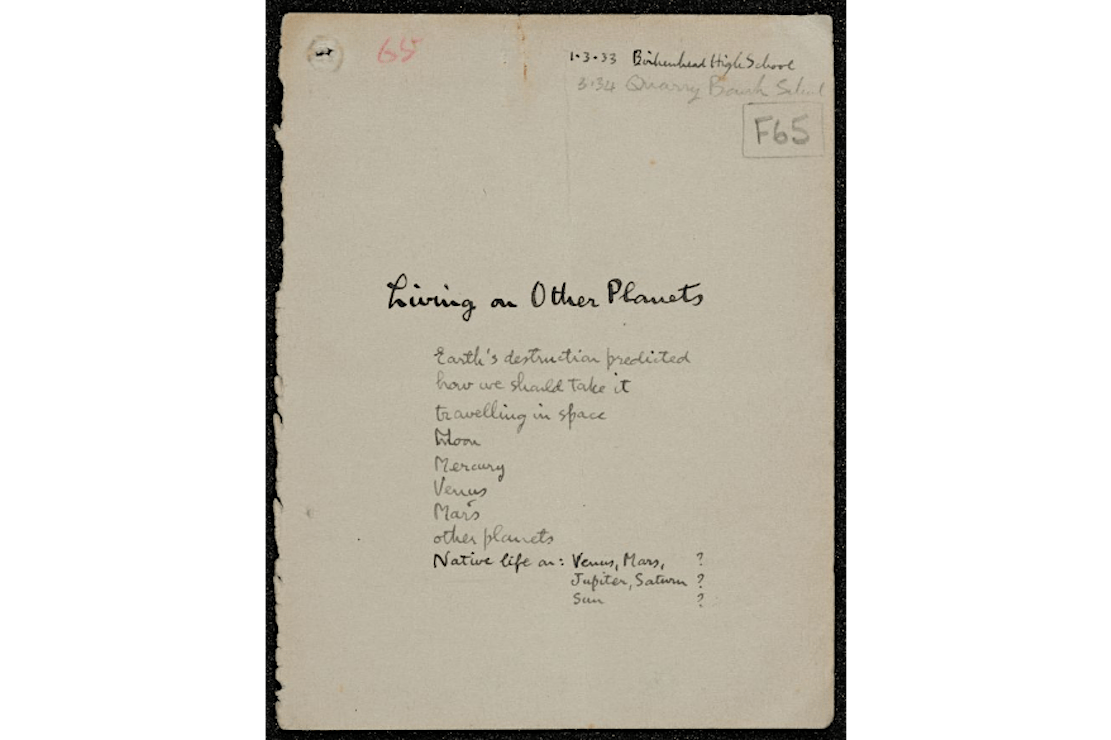 65
1·3·33 Birkenhead High School
3·34 Quarry Bank School
F65
Living on Other Planets
Earth's destruction predicted
how we should take it
travelling in space
Moon
Mercury
Venus
Mars
other planets
Native life on: Venus, Mars, ?
Jupiter, Saturn ?
Sun ?